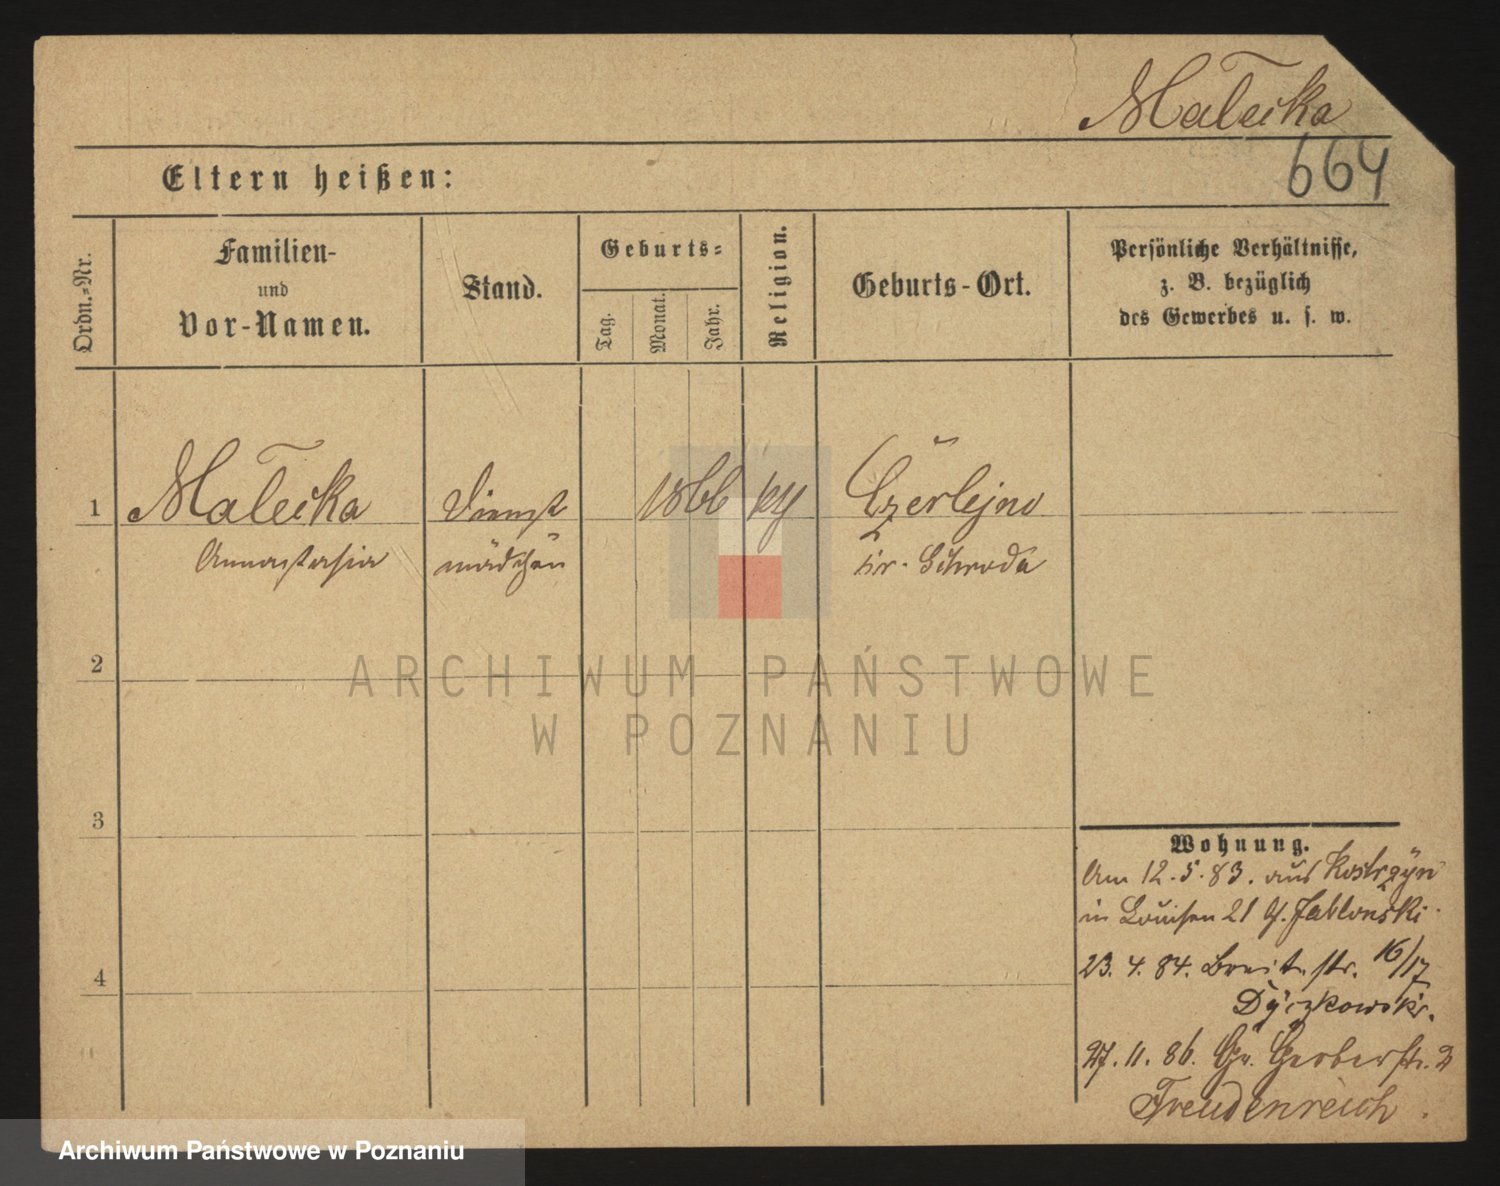 Malecka
664
Eltern heißen:
Ordn.-Nr.
Familien-
und
Vor-Namen.
Stand.
Geburts-
Tag.
Monat.
Jahr.
Religion.
Geburts-Ort.
Persönliche Verhältnisse,
z. B. bezüglich
des Gewerbes u. s. w.
1 Malecka Dienst 1866 Czerlejno
Annastasia mädchen kr. Schroda
2
3
4
Wohnung.
Am 12.5.83. aus Kostrzyn
in Louisen 21 Jablonski.
23.4.84. Breitestr. 16/17
Dyczkowski.
27.11.86. Gr. Gerberstr. 2
Freudenreich.
ARCHIWUM PAŃSTWOWE
W POZNANIU
Archiwum Państwowe w Poznaniu